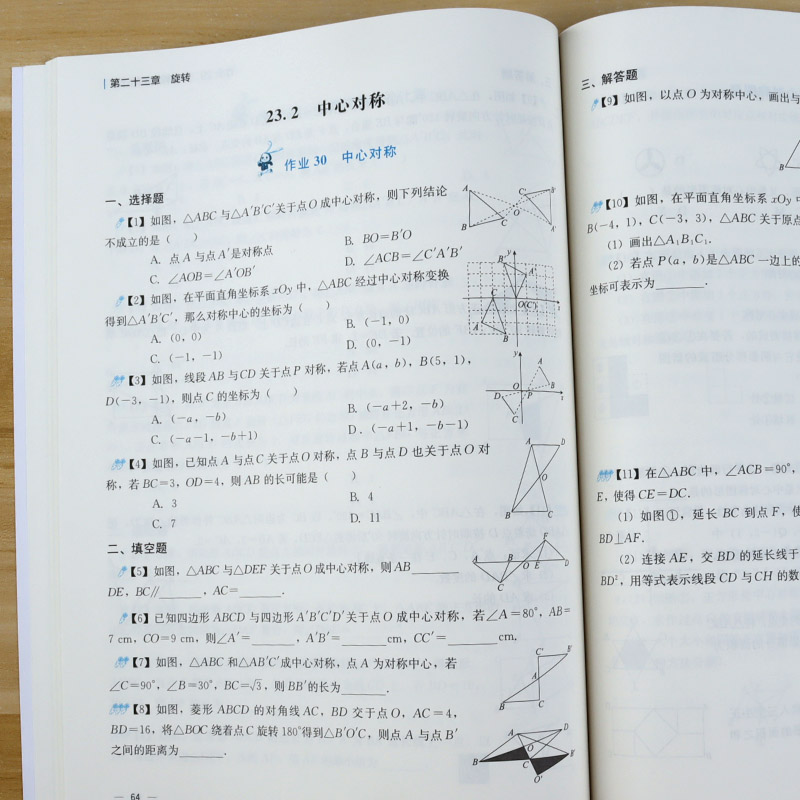 第二十三章 旋转
23.2 中心对称
作业30 中心对称
一、选择题
【1】如图,△ABC与△A′B′C′关于点O成中心对称,则下列结论
不成立的是( )
A. 点A与点A′是对称点
B. BO=B′O
C. ∠AOB=∠A′OB′
D. ∠ACB=∠C′A′B′
【2】如图,在平面直角坐标系xOy中,△ABC经过中心对称变换
得到△A′B′C′,那么对称中心的坐标为( )
A. (0,0)
B. (-1,0)
C. (-1,-1)
D. (0,-1)
【3】如图,线段AB与CD关于点P对称,若点A(a,b),B(5,1),
D(-3,-1),则点C的坐标为( )
A. (-a,-b)
B. (-a+2,-b)
C. (-a-1,-b+1)
D. (-a+1,-b-1)
【4】如图,已知点A与点C关于点O对称,点B与点D也关于点O对
称,若BC=3,OD=4,则AB的长可能是( )
A. 3
B. 4
C. 7
D. 11
二、填空题
【5】如图,△ABC与△DEF关于点O成中心对称,则AB______
DE,BC∥______,AC=______.
【6】已知四边形ABCD与四边形A′B′C′D′关于点O成中心对称,若∠A=80°,AB=
7 cm,CO=9 cm,则∠A′=______,A′B′=______cm,CC′=______cm.
【7】如图,△ABC和△AB′C′成中心对称,点A为对称中心,若
∠C=90°,∠B=30°,BC=√3,则BB′的长为______.
【8】如图,菱形ABCD的对角线AC,BD交于点O,AC=4,
BD=16,将△BOC绕着点C旋转180°得到△B′O′C,则点A与点B′
之间的距离为______.
— 64 —
三、解答题
【9】如图,以点O为对称中心,画出与
【10】如图,在平面直角坐标系xOy中
B(-4,1),C(-3,3),△ABC关于原点
(1)画出△A₁B₁C₁.
(2)若点P(a,b)是△ABC一边上的
坐标可表示为______.
【11】在△ABC中,∠ACB=90°,
E,使得CE=DC.
(1)如图①,延长BC到点F,使
BD⊥AF.
(2)连接AE,交BD的延长线于
BD²,用等式表示线段CD与CH的数